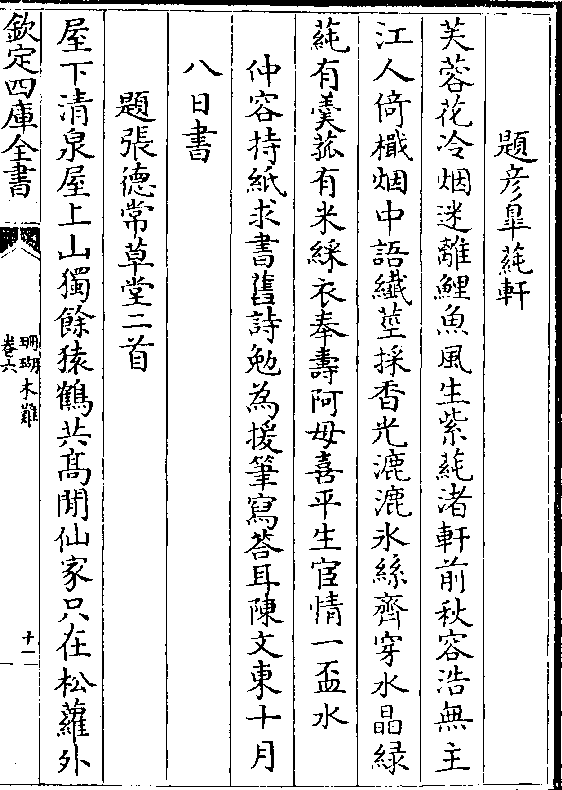 題彦臯蒓軒
芙蓉花冷烟迷離鯉魚風生紫蒓渚軒前秋容浩無主
江人倚檝烟中語纎莖採香光漉漉氷絲齊穿水晶緑
蒓有羮菰有米綵衣奉壽阿母喜平生宦情一盃水
仲容持紙求書舊詩勉為援筆寫荅耳陳文東十月
八日書
題張德常草堂二首
屋下清泉屋上山獨餘猿鶴共髙閒仙家只在松蘿外
欽定四庫全書
珊瑚木難
卷六
十一